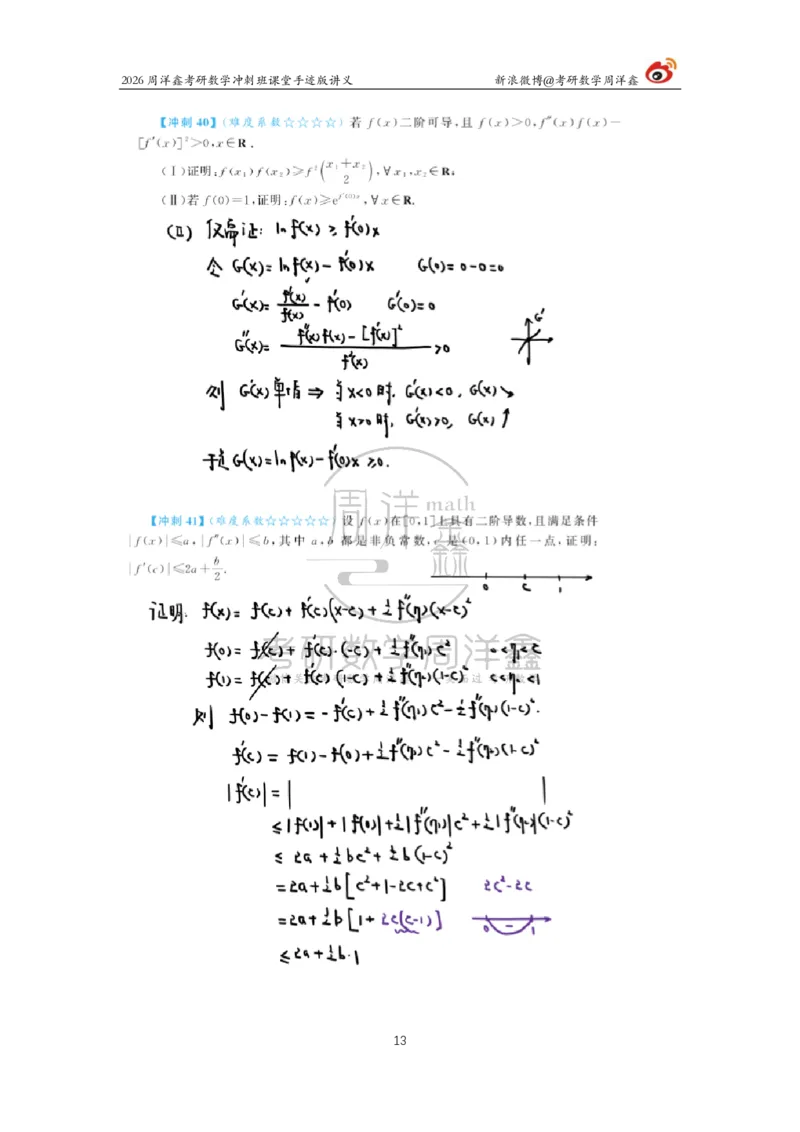 2026 周洋鑫考研数学冲刺班课堂手迹版讲义 新浪微博@考研数学周洋鑫
【冲刺 40】(难度系数☆☆☆☆) 若 f(x)二阶可导,且 f(x)>0,f″(x)f(x)−
[f′(x)]²>0,x∈R.
(Ⅰ)证明:f(x₁)f(x₂)≥f²((x₁+x₂)/2),∀x₁,x₂∈R;
(Ⅱ)若 f(0)=1,证明:f(x)≥e^{f′(0)x},∀x∈R.
(Ⅱ) 仅需证: ln f(x) ≥ f′(0)x
令 G(x)= ln f(x) − f′(0)x G(0)= 0−0=0
G′(x)= f′(x)/f(x) − f′(0) G′(0)=0
G″(x)= (f″(x)f(x)−[f′(x)]²)/f²(x) >0
G′
则 G′(x)单增 ⇒ 当 x<0 时, G′(x)<0, G(x)↘
当 x>0 时, G′(x)>0, G(x)↑
于是 G(x)=ln f(x)−f′(0)x ≥0.
周洋鑫 math
【冲刺 41】(难度系数☆☆☆☆☆) 设 f(x)在[0,1]上具有二阶导数,且满足条件
|f(x)|≤a,|f″(x)|≤b,其中 a,b 都是非负常数,c 是(0,1)内任一点,证明:
|f′(c)|≤2a+b/2.
0 c 1
证明: f(x)= f(c)+ f′(c)(x−c)+½f″(η)(x−c)²
f(0)= f(c)+ f′(c)·(−c)+½f″(η₁)c² 0<η₁<c
考研数学周洋鑫
f(1)= f(c)+ f′(c)(1−c)+½f″(η₂)(1−c)² c<η₂<1
则 f(0)−f(1)= −f′(c)+½f″(η₁)c²−½f″(η₂)(1−c)².
f′(c)= f(1)−f(0)+½f″(η₁)c²−½f″(η₂)(1−c)²
|f′(c)|=| |
≤|f(1)|+|f(0)|+½|f″(η₁)|c²+½|f″(η₂)|(1−c)²
≤ 2a+½bc²+½b(1−c)²
=2a+½b[c²+1−2c+c²] 2c²−2c
=2a+½b[1+2c(c−1)] 0 − 1
≤2a+½b·1
13